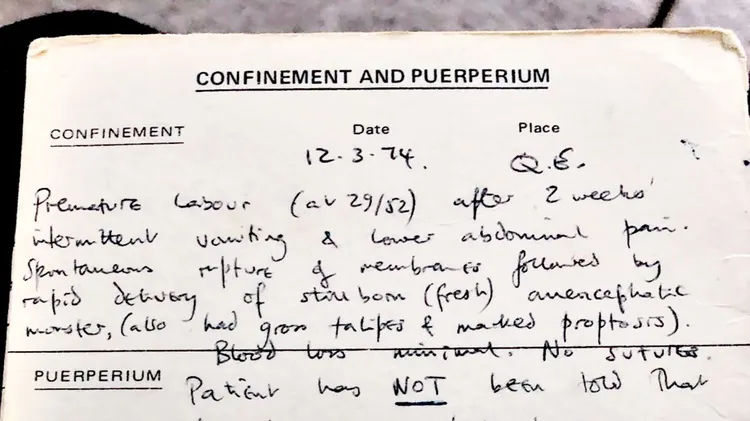 CONFINEMENT AND PUERPERIUM
CONFINEMENT Date Place
12.3.74. Q.E.
Premature Labour (at 29/52) after 2 weeks'
intermittent vomiting & lower abdominal pain.
Spontaneous rupture of membranes followed by
rapid delivery of stillborn (fresh) anencephalic
monster, (also had gross talipes & marked proptosis).
Blood loss minimal. No sutures.
PUERPERIUM Patient has NOT been told that